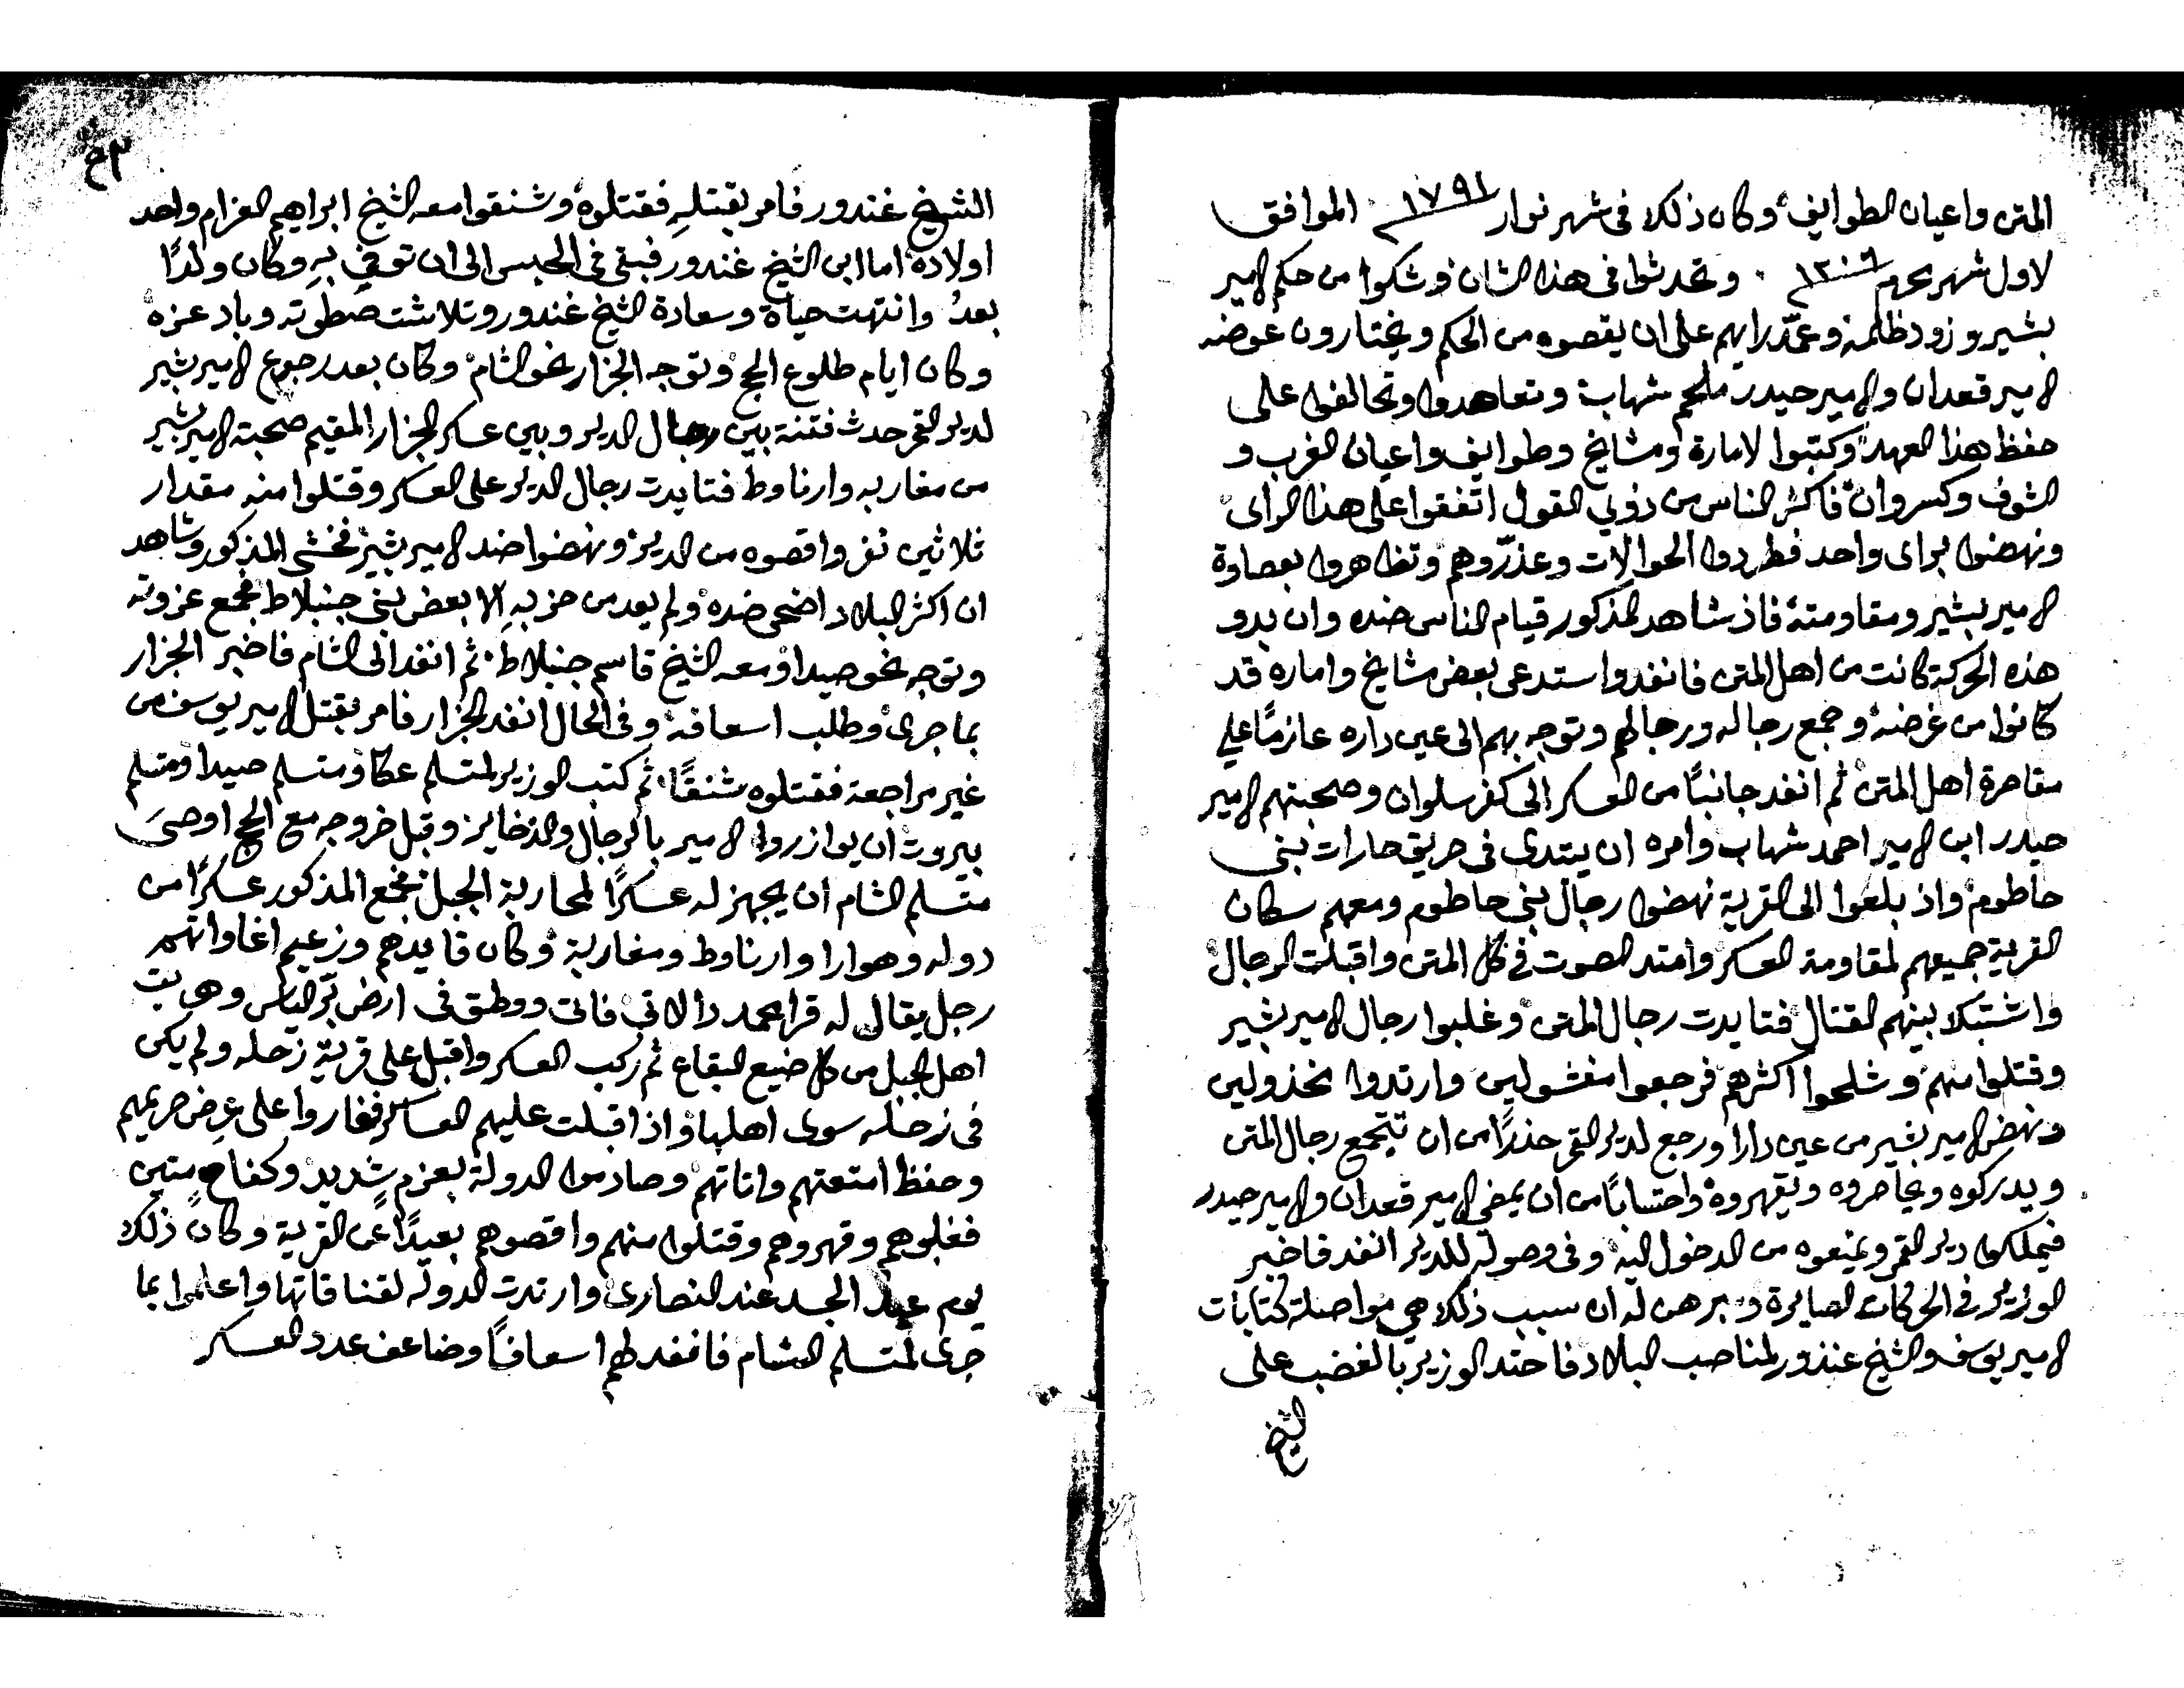 المتن واعيان الطوايف وكان ذلك فى شهر نوار ١٧٩١ الموافق
لاول شهر محرم ١٢٠٦ وتحدثوا فى هذا الشان وشكوا من حكم الامير
بشير وزود ظلمه وعمّد رايهم على ان يقصوه من الحكم ويختارون عوضه
الامير قعدان والامير حيدر ملحم شهاب وتعاهدوا وتحالفوا على
حفظ هذا العهد وكتبوا لامارة ومشايخ وطوايف واعيان الغرب و
الشوف وكسروان فاكثر الناس من ذوي العقول اتفقوا على هذا الراى
ونهضوا براى واحد فطردوا الحوالات وعذرّوهم وتظاهروا بعصاوة
الامير بشير ومقاومته فاذ شاهد المذكور قيام الناس ضده وان بدو
هذه الحركة كانت من اهل المتن فانفد واستدعى بعض مشايخ واماره قد
كانوا من غرضه وجمع رجاله ورجالهم وتوجه بهم الى عين داره عازمًا على
مقاصرة اهل المتن ثم انفد جانبًا من العسكر الى كفرسلوان وصحبتهم الامير
حيدر ابن الامير احمد شهاب وامره ان يبتدى فى حريق حارات بنى
حاطوم واذ بلغوا الى القرية نهضوا رجال بنى حاطوم ومعهم سكان
القرية جميعهم لمقاومة العسكر وامتد الصوت فى كل المتن واقبلت الرجال
واشتبك بينهم القتال فتايدت رجال المتن وغلبوا رجال الامير بشير
وقتلوا منهم وشلحوا اكثرهم فرجعوا مفشولين وارتدوا مخذولين
ونهض الامير بشير من عين دارا ورجع لدير القمر حذرًا من ان تتجمع رجال المتن
ويدركوه ويحاصروه ويقهروه واحتسابًا من ان يمضى الامير قعدان والامير حيدر
فيملكوا دير القمر ويمنعوه من الدخول اليه وفى وصوله للدير انفد فاخبر
الوزير فى الحركات الصايرة وبرهن له ان سبب ذلك هي مواصلة كتابات
الامير يوسف والشيخ عندور لمناصب البلاد فاحتد الوزير بالغضب على
الشيخ
٢٣
الشيخ غندور فامر بقتلهِ فقتلوه وشنقوا معه الشيخ ابراهيم العزام واحد
اولاده اما ابن الشيخ غندور فبقى فى الحبس الى ان توفي بهِ وكان ولدًا
بعدُ وانتهت حياة وسعادة الشيخ غندور وتلاشت صطوته وباد عزه
وكان ايام طلوع الحج وتوجه الجزار نحو الشام وكان بعد رجوع الامير بشير
لدير القمر حدث فتنة بين رجال الدير وبين عسكر الجزار المقيم صحبة الامير بشير
من مغاربه وارناوط فتايدت رجال الدير على العسكر وقتلوا منه مقدار
ثلاثين نفر واقصوه من الدير ونهضوا ضد الامير بشير فخشى المذكور وشاهد
ان اكثر البلاد اضحى ضده ولم يعد من حزبهِ الا بعض بنى جنبلاط فجمع عزوته
وتوجه نحو صيدا ومعه الشيخ قاسم جنبلاط ثم انفد الى الشام فاخبر الجزار
بما جرى وطلب اسعافه وفى الحال انفد الجزار فامر بقتل الامير يوسف من
غير مراجعة فقتلوه شنقًا ثم كتب الوزير لمتسلم عكا ومتسلم صيدا ومتسلم
بيروت ان يوازروا الامير بالرجال والذخاير وقبل خروجه مع الحج اوصى
متسلم الشام ان يجهز له عسكرًا لمحاربة الجبل فجمع المذكور عسكرًا من
دوله وهوارا وارناوط ومغاربة وكان قايدهم وزعيم اغاواتهم
رجل يقال له قرا محمد دالاتى فاتى ووطق فى ارض برّ الياس وهربت
اهل الجبل من كل ضيع البقاع ثم ركب العسكر واقبل على قرية زحله ولم يكن
فى زحله سوى اهلها واذ اقبلت عليهم العساكر فغاروا على عرض حريمهم
وحفظ امتعتهم واثاتهم وصادموا الدولة بعزم شديد وكفاح متين
فغلبوهم وقهروهم وقتلوا منهم واقصوهم بعيدًا عن القرية وكان ذلك
يوم عيد الجسد عند النصارى وارتدت الدوله لقناقاتها واعلموا بما
جرى لمتسلم الشام فانفد لهم اسعافًا وضاعف عدد العسكر